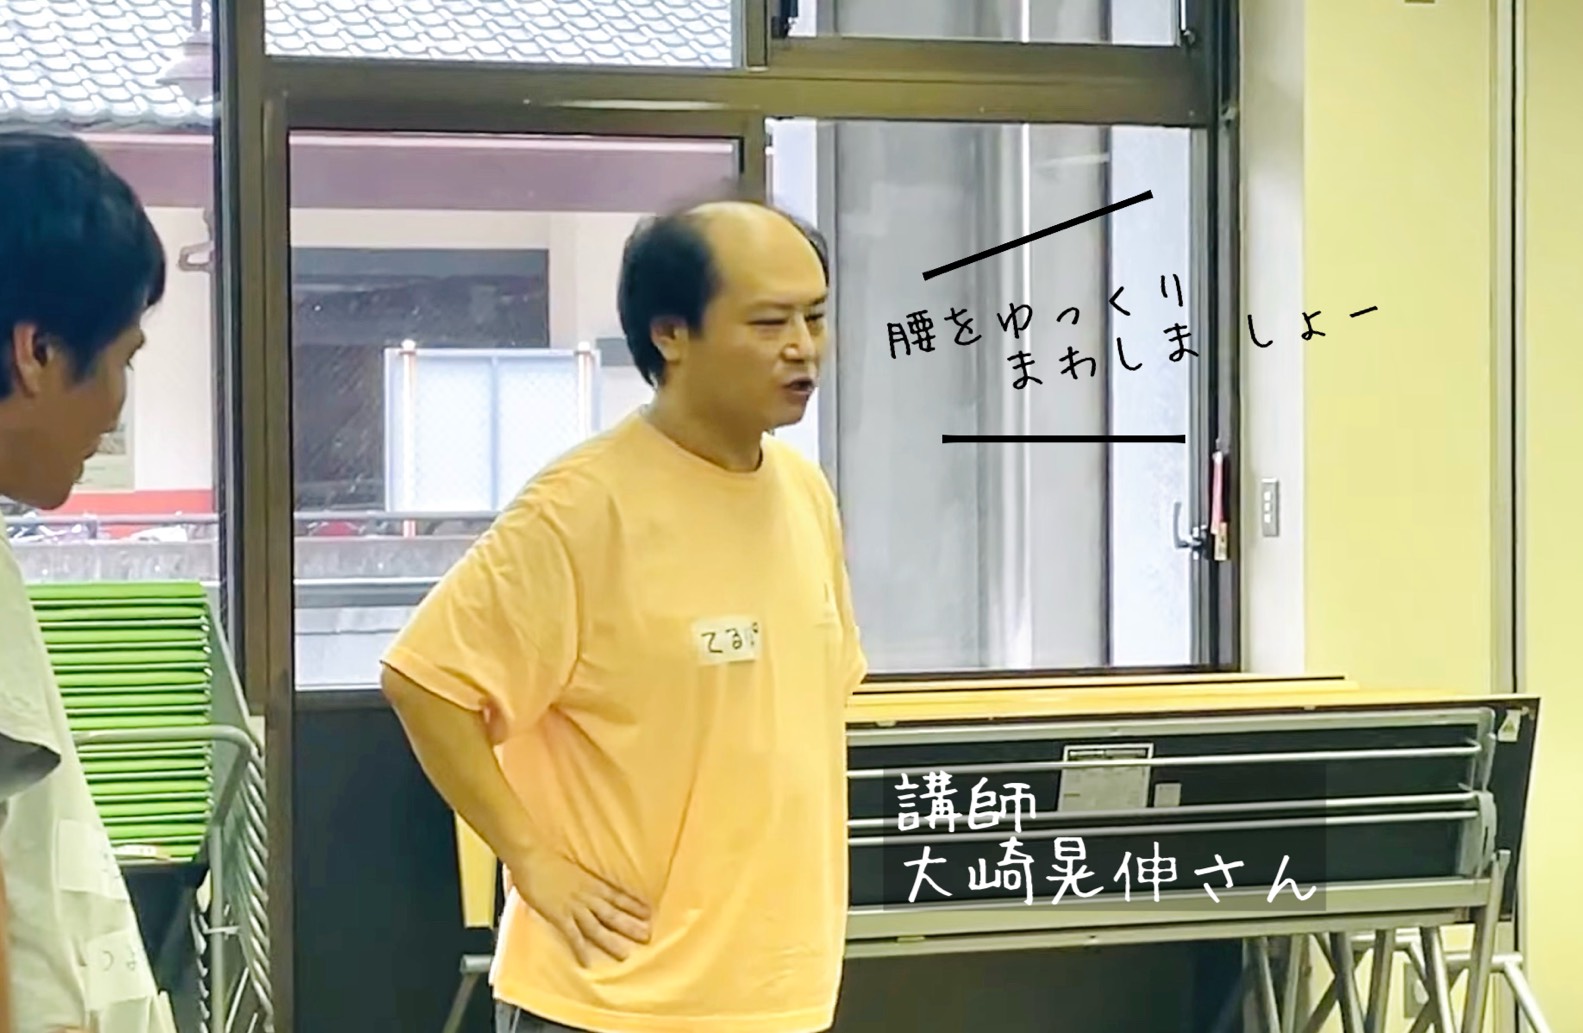 腰をゆっくり
まわしましょー
てるぱ
講師
大崎晃伸さん